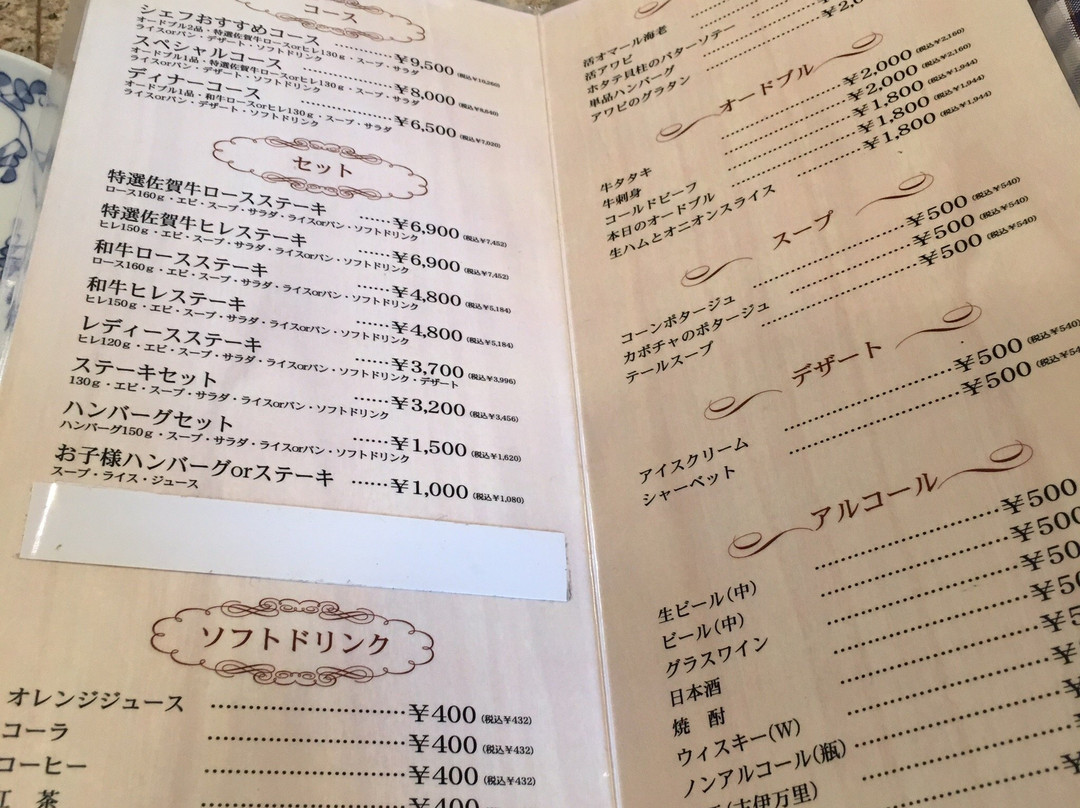 コース
シェフおすすめコース ……………¥9,500(税込¥10,260)
オードブル2品・特選佐賀牛ロースorヒレ130g・スープ・サラダ
ライスorパン・デザート・ソフトドリンク
スペシャルコース ……………¥8,000(税込¥8,640)
オードブル1品・特選佐賀牛ロースorヒレ130g・スープ・サラダ
ライスorパン・デザート・ソフトドリンク
ディナーコース ……………¥6,500(税込¥7,020)
オードブル1品・和牛ロースorヒレ130g・スープ・サラダ
ライスorパン・デザート・ソフトドリンク
セット
特選佐賀牛ロースステーキ ……¥6,900(税込¥7,452)
ロース160g・エビ・スープ・サラダ・ライスorパン・ソフトドリンク
特選佐賀牛ヒレステーキ ……¥6,900(税込¥7,452)
ヒレ150g・エビ・スープ・サラダ・ライスorパン・ソフトドリンク
和牛ロースステーキ ……¥4,800(税込¥5,184)
ロース160g・エビ・スープ・サラダ・ライスorパン・ソフトドリンク
和牛ヒレステーキ ……¥4,800(税込¥5,184)
ヒレ150g・エビ・スープ・サラダ・ライスorパン・ソフトドリンク
レディースステーキ ……¥3,700(税込¥3,996)
ヒレ120g・エビ・スープ・サラダ・ライスorパン・ソフトドリンク・デザート
ステーキセット ……¥3,200(税込¥3,456)
130g・エビ・スープ・サラダ・ライスorパン・ソフトドリンク
ハンバーグセット ……¥1,500(税込¥1,620)
ハンバーグ150g・スープ・サラダ・ライスorパン・ソフトドリンク
お子様ハンバーグorステーキ ……¥1,000(税込¥1,080)
スープ・ライス・ジュース
ソフトドリンク
オレンジジュース ……………¥400(税込¥432)
コーラ ……………¥400(税込¥432)
コーヒー ……………¥400(税込¥432)
紅 茶 ……………¥400
活オマール海老
活アワビ
ホタテ貝柱のバターソテー
単品ハンバーグ
アワビのグラタン
オードブル
牛タタキ ……………¥2,000(税込¥2,160)
牛刺身 ……………¥2,000(税込¥2,160)
コールドビーフ ……………¥1,800(税込¥1,944)
本日のオードブル ……………¥1,800(税込¥1,944)
生ハムとオニオンスライス ……………¥1,800(税込¥1,944)
スープ
コーンポタージュ ……………¥500(税込¥540)
カボチャのポタージュ ……………¥500(税込¥540)
テールスープ ……………¥500(税込¥540)
デザート
アイスクリーム ……………¥500(税込¥540)
シャーベット ……………¥500
アルコール
生ビール(中) ……………¥500
ビール(中) ……………¥500
グラスワイン
日本酒
焼 酎
ウィスキー(W)
ノンアルコール(瓶)
(古伊万里)